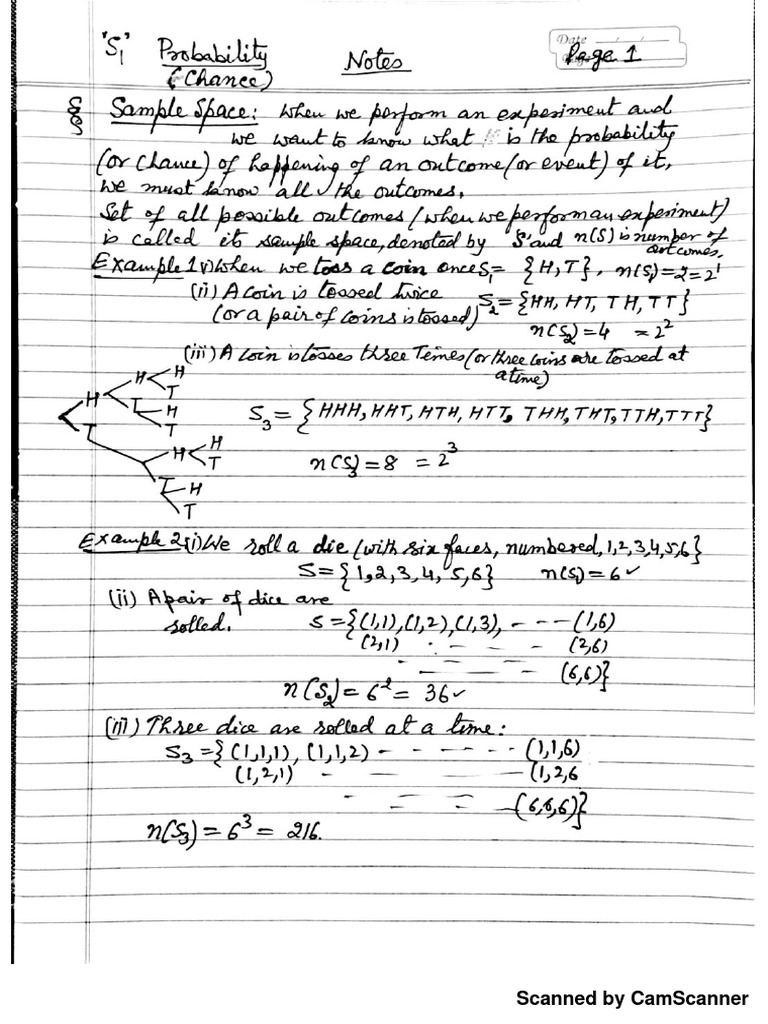 'S1' Probability Notes Page 1
(Chance)
Date
§ Sample Space: When we perform an experiment and
we want to know what is the probability
(or chance) of happening of an outcome (or event) of it,
we must know all the outcomes.
Set of all possible outcomes (when we perform an experiment)
is called it sample space, denoted by S and n(S) is number of
outcomes.
Example 1 (i) When we toss a coin once S1 = {H,T}, n(S1)=2=2^1
(ii) A coin is tossed twice S2={HH, HT, TH, TT}
(or a pair of coins is tossed) n(S2)=4 =2^2
(iii) A coin is tosses three Times (or three coins are tossed at
a time)
H
H T
H T H
T
S3 = {HHH, HHT, HTH, HTT, THH, THT, TTH, TTT}
T
H H
T
n(S3)=8 =2^3
T H
T
Example 2 (i) We roll a die (with six faces, numbered, 1,2,3,4,5,6}
S={1,2,3,4,5,6} n(S1)=6✓
(ii) A pair of dice are
rolled. S={(1,1),(1,2),(1,3), - - - (1,6)
(2,1) - - - (2,6)
- - - - - (6,6)}
n(S2)=6^2= 36✓
(iii) Three dice are rolled at a time:
S3={(1,1,1), (1,1,2) - - - - - - (1,1,6)
(1,2,1) - - - (1,2,6
- - - - (6,6,6)}
n(S3)=6^3= 216.
Scanned by CamScanner